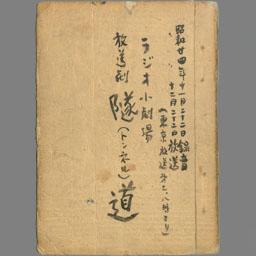 昭和廿四年十一月二十二日録音
十二月二十二日放送
(東京放送
ラジオ小劇場
放送劇
隧(トンネル)道